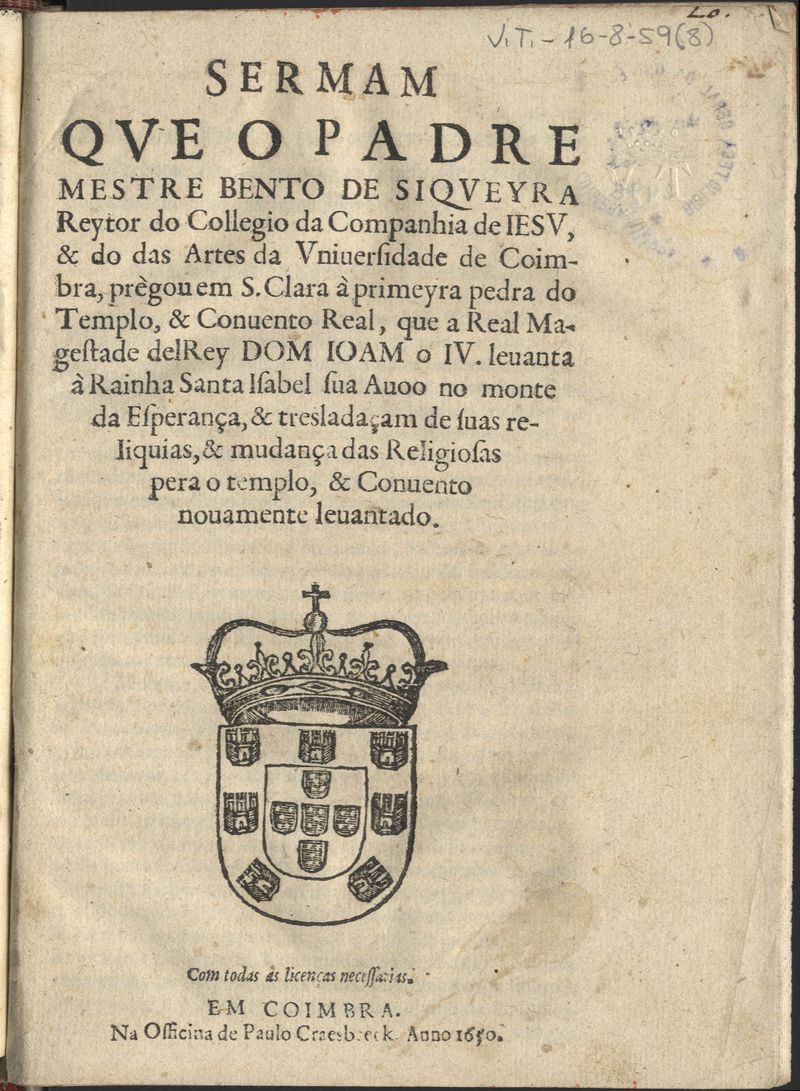 Lo.
V.T.-16-8-59(8)
SERMAM
QVE O PADRE
MESTRE BENTO DE SIQVEYRA
Reytor do Collegio da Companhia de IESV,
& do das Artes da Vniuerſidade de Coim-
bra, prègou em S. Clara à primeyra pedra do
Templo, & Conuento Real, que a Real Ma-
geſtade delRey DOM IOAM o IV. leuanta
à Rainha Santa Iſabel ſua Auoo no monte
da Eſperança, & tresladaçam de ſuas re-
liquias, & mudança das Religioſas
pera o templo, & Conuento
nouamente leuantado.
Com todas as licenças neceſſarias.
EM COIMBRA.
Na Officina de Paulo Craesbeeck. Anno 1650.